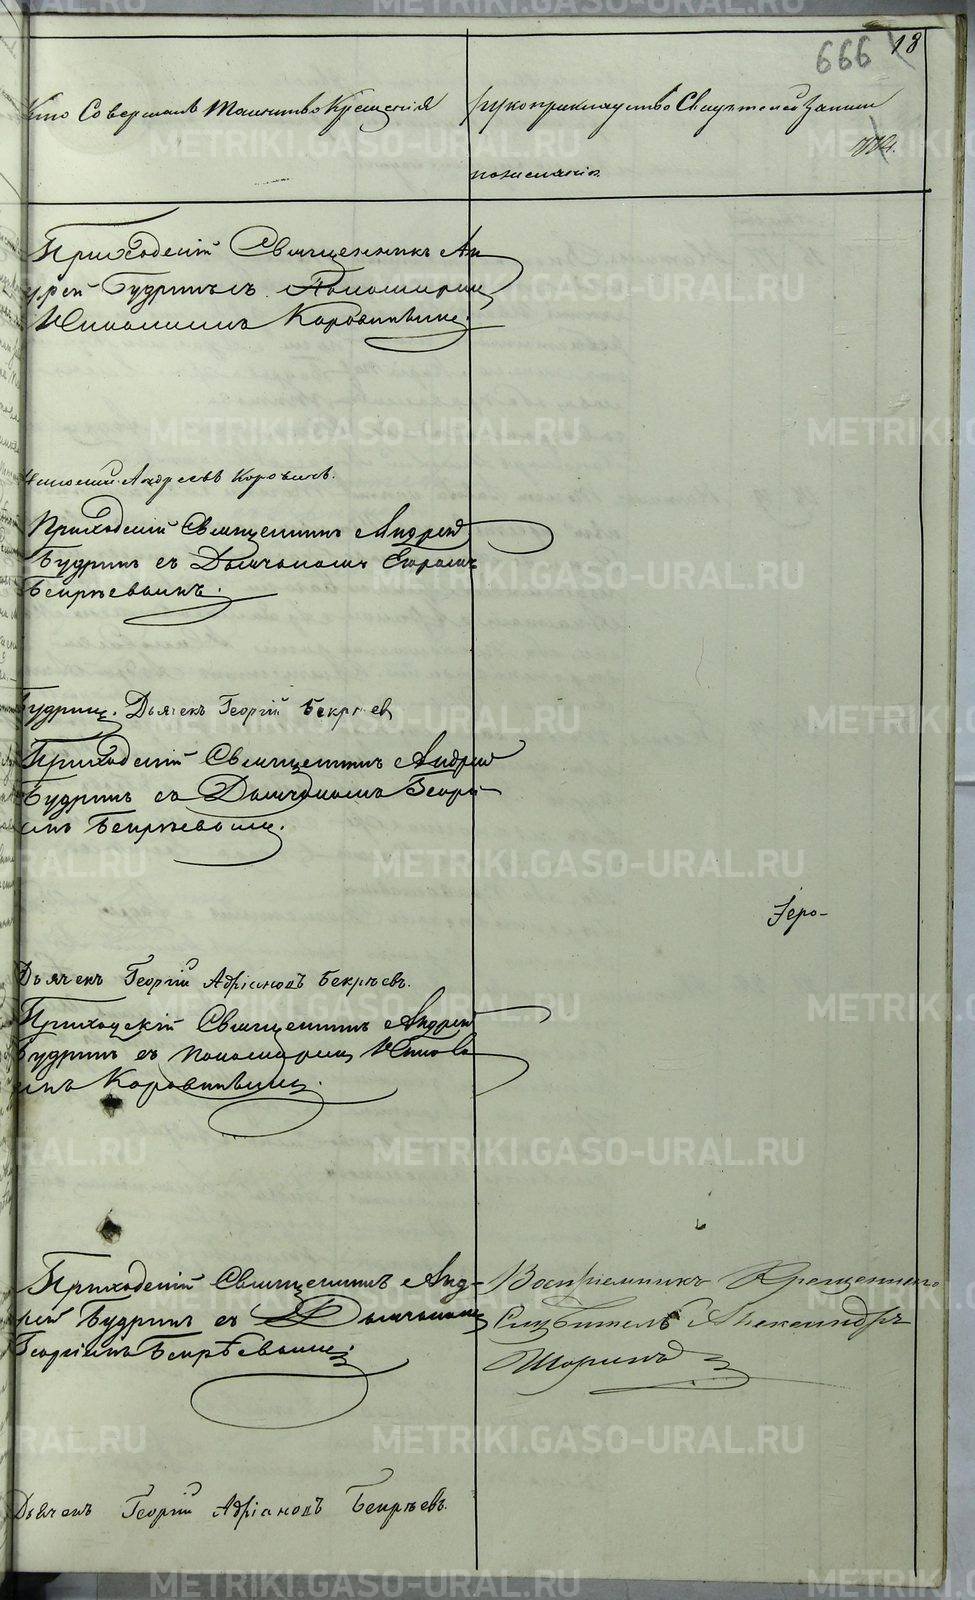 666 18
Кто Совершалъ Таинство Крещенія
рукоприкладство Свидѣтелей Записи
по желанію.
Приходскій Священникъ Ан
дрей Будринъ съ Пономаремъ
Коровинымъ.
Андреевъ Коровинъ.
Приходскій Священникъ Андрей
Будринъ съ Дьячкомъ Егоромъ
Бекрѣевымъ.
Будринъ. Дьячекъ Георгій Бекрѣев
Приходскій Священникъ Андрей
Будринъ съ Дьячкомъ Георгі
емъ Бекрѣевымъ.
Іеро-
Дьячекъ Георгій Адріановъ Бекрѣевъ.
Приходскій Священникъ Андрей
Будринъ съ Пономаремъ
Коровинымъ.
Приходскій Священникъ Анд-
рей Будринъ съ Дьячкомъ
Георгіемъ Бекрѣевымъ
Воспріемникъ Крещеннаго
Служитель Александръ
Шоринъ
Дьячекъ Георгій Адріановъ Бекрѣевъ.
METRIKI.GASO-URAL.RU